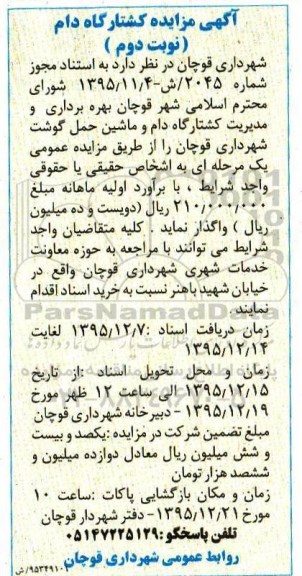 آگهی مزایده کشتارگاه دام
(نوبت دوم)
شهرداری قوچان در نظر دارد به استناد مجوز
شماره ۲۰۴۵/ش-۱۳۹۵/۱۱/۴ شورای
محترم اسلامی شهر قوچان بهره برداری و
مدیریت کشتارگاه دام و ماشین حمل گوشت
شهرداری قوچان را از طریق مزایده عمومی
یک مرحله ای به اشخاص حقیقی یا حقوقی
واجد شرایط ، با برآورد اولیه ماهانه مبلغ
۲۱۰,۰۰۰,۰۰۰ ریال (دویست و ده میلیون
ریال ) واگذار نماید . کلیه متقاضیان واجد
شرایط می توانند با مراجعه به حوزه معاونت
خدمات شهری شهرداری قوچان واقع در
خیابان شهید باهنر نسبت به خرید اسناد اقدام
نمایند
زمان دریافت اسناد :۱۳۹۵/۱۲/۷ لغایت
۱۳۹۵/۱۲/۱۴
زمان و محل تحویل اسناد :از تاریخ
۱۳۹۵/۱۲/۱۵ الی ساعت ۱۲ ظهر مورخ
۱۳۹۵/۱۲/۱۹ - دبیرخانه شهرداری قوچان
مبلغ تضمین شرکت در مزایده :یکصد و بیست
و شش میلیون ریال معادل دوازده میلیون و
ششصد هزار تومان
زمان و مکان بازگشایی پاکات :ساعت ۱۰
مورخ ۱۳۹۵/۱۲/۲۱- دفتر شهردار قوچان
تلفن پاسخگو:۰۵۱۴۷۲۲۵۱۲۹
روابط عمومی شهرداری قوچان
ParsNamadData